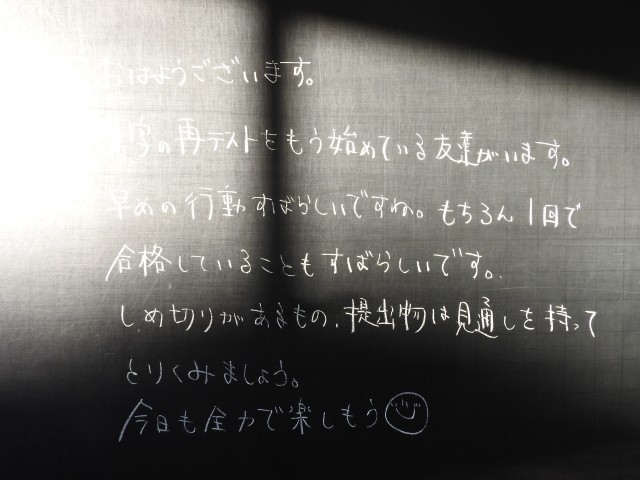 おはようございます。
漢字の再テストをもう始めている友達がいます。
早めの行動すばらしいですね。もちろん1回で
合格していることもすばらしいです。
しめ切りがあるもの、提出物は見通しを持って
とりくみましょう。
今日も全力で楽しもう